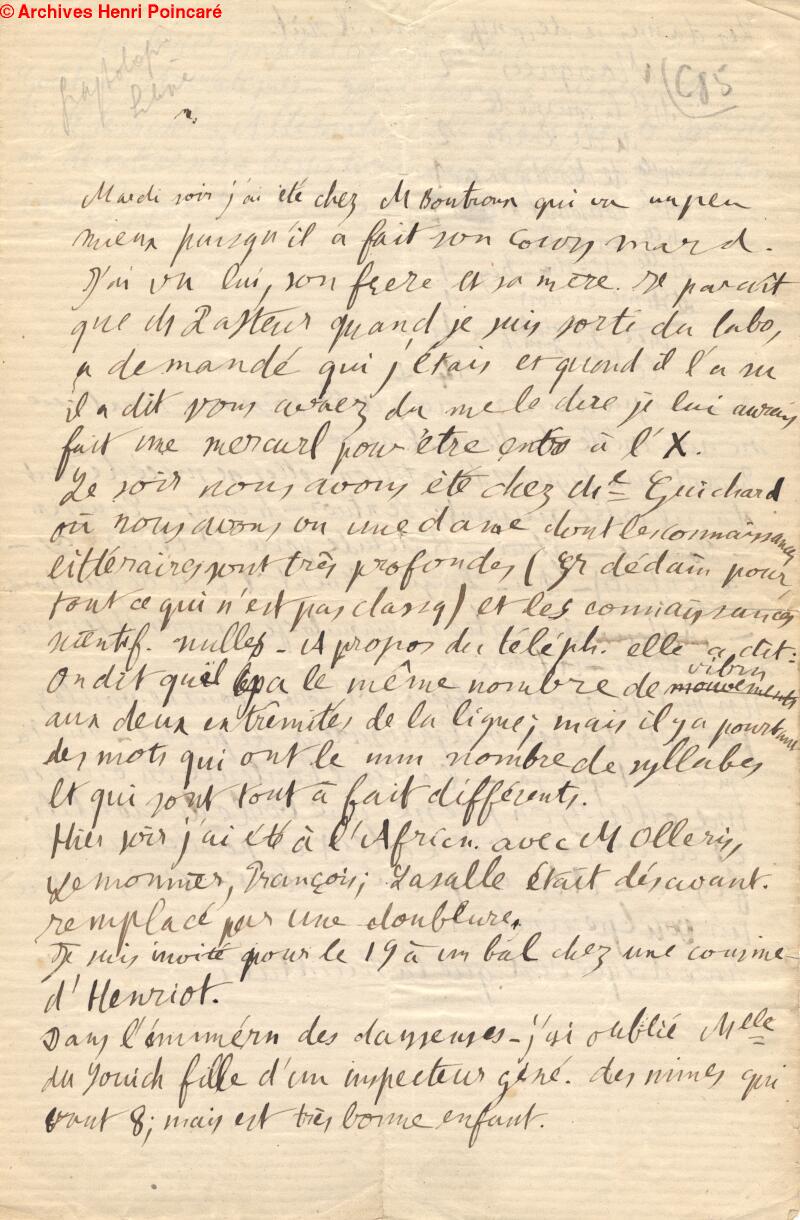 © Archives Henri Poincaré
C85
Mardi soir j'ai été chez M Boutroux qui va un peu
mieux puisqu'il a fait son cours mard.
J'ai vu lui, son frere et sa mère. Il parait
que M Pasteur quand je suis sorti du labo,
a demandé qui j'étais et quand il l'a su
il a dit vous aviez du me le dire je lui aurais
fait une mercurl pour être entré à l'X.
Le soir nous avons été chez Me Guichard
où nous avons vu une dame dont les connaissances
littéraires sont très profondes (gr dédain pour
tout ce qui n'est pas classq) et les connaissances
scientif. nulles - A propos du téléph. elle a dit:
On dit qu'il y a le même nombre de mouvements vibrn
aux deux extrémités de la ligne; mais il y a pourtant
des mots qui ont le mm nombre de syllabes
et qui sont tout à fait différents.
Hier soir j'ai été à l'African. avec M Olleris,
Lemonnier, François; Lasalle était désavant.
remplacé par une doublure.
Je suis invité pour le 19 à un bal chez une cousine
d'Henriot.
Dans l'énumérn des danseuses - j'ai oublié Melle
du Souich fille d'un inspecteur géné. des mines qui
vaut 8; mais est très bonne enfant.